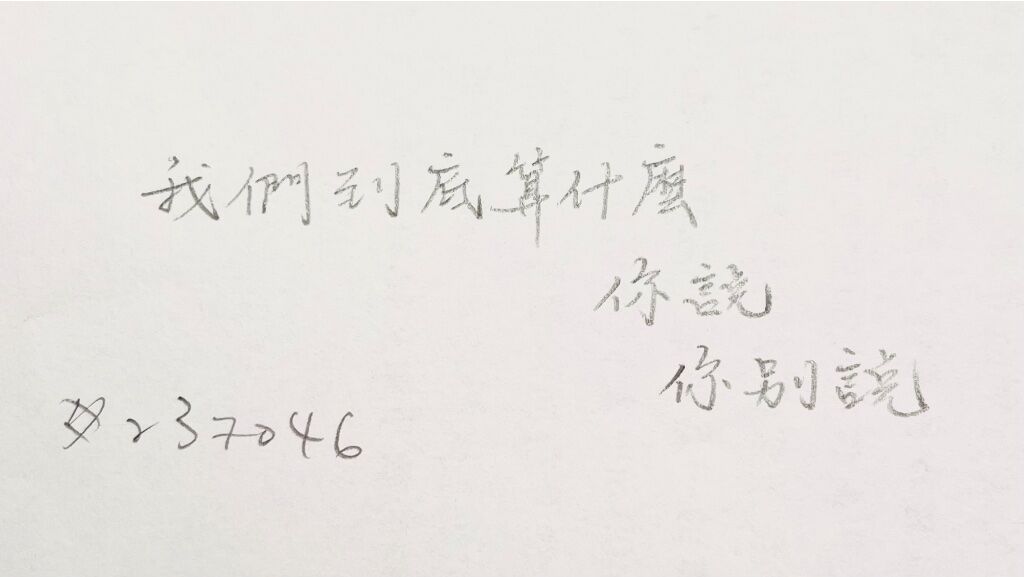 我們到底算什麼
你說
你別說
#237046